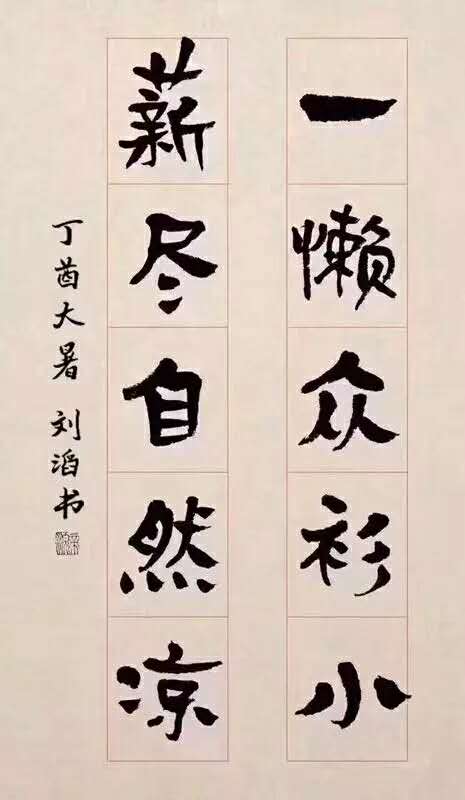 一懒众衫小
薪尽自然凉
丁酉大暑 刘滔书